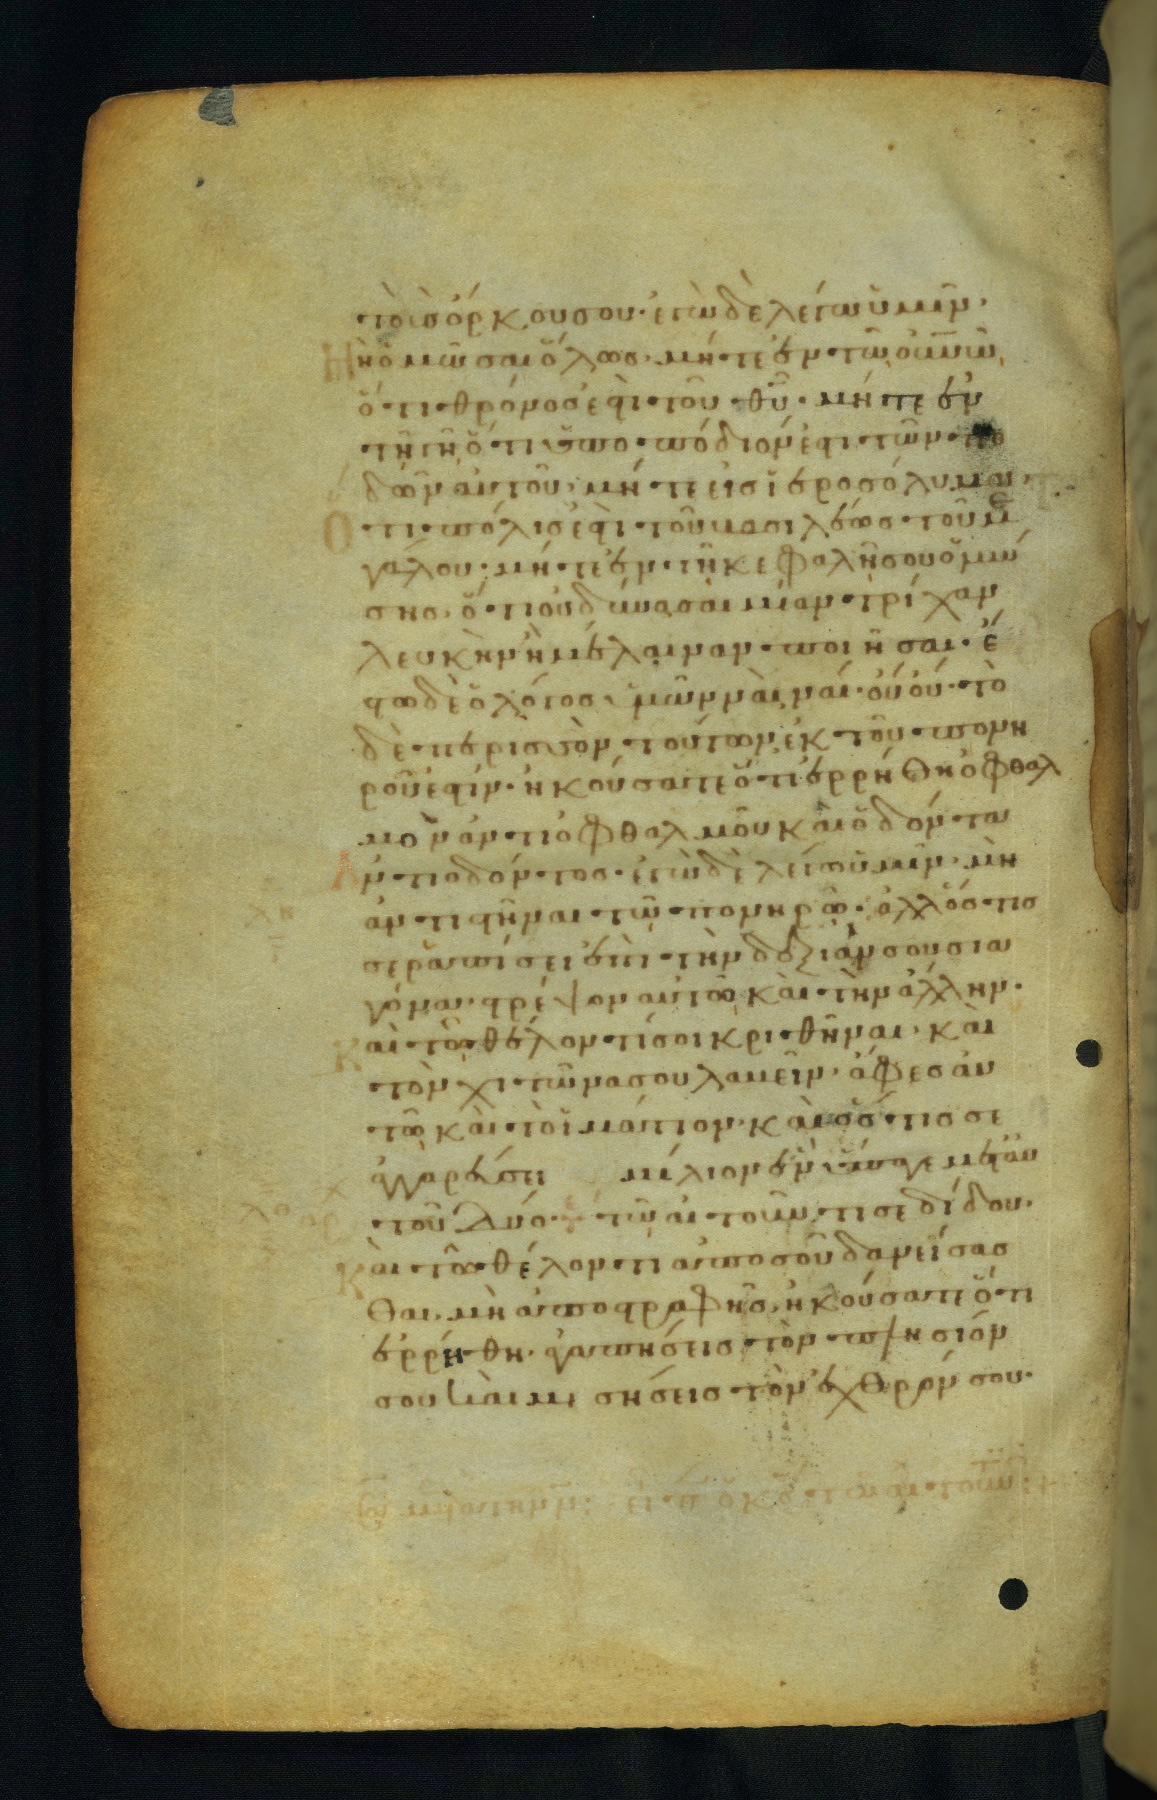 τοὺσόρκουσου· ἐγὼ δὲ λέγω ὑμῖν·
μὴ ὀμῶσαι ὅλως· μήτε ἐν τῶ οὐνῶ
ὅτι θρόνος ἐστὶ τοῦ θῦ· μήτε ἐν
τῆ γῆ ὅτι ὑποπόδιόν ἐστι τῶν πο
δῶν αὐτοῦ· μήτε εἰς ἱεροσόλυμα·
Ὅτι πόλις ἐστὶ τοῦ βασιλέως τοῦ με
γάλου· μήτε ἐν τῆ κεφαλῆ σου ὀμό
σης· ὅτι οὐ δύνασαι μίαν τρίχαν
λευκὴν ἢ μέλαιναν ποιῆσαι· ἔ
στω δὲ ὁ λόγος ὑμῶν ναὶ ναί· οὔ οὔ· τὸ
δὲ περισσὸν τούτων ἐκ τοῦ πονη
ροῦ ἐστίν· ἠκούσατε ὅτι ἐρρήθη ὀφθαλ
μὸν ἀντὶ ὀφθαλμοῦ καὶ ὀδόντα
Ἀντὶ ὀδόντος· ἐγὼ δὲ λέγω ὑμῖν· μὴ
ἀντιστῆναι τῶ πονηρῶ· ἀλλ' ὅστις
σε ῥαπίσει ἐπὶ τὴν δεξιάν σου σια
γόνα· στρέψον αὐτῶ καὶ τὴν ἄλλην·
Καὶ τῶ θέλοντί σοι κριθῆναι· καὶ
τὸν χιτῶνα σου λαβεῖν· ἄφες αὐ
τῶ καὶ τὸ ἱμάτιον· καὶ ὅστις σε
ἀγγαρεύσει μίλιον ἓν ὕπαγε μετ' αὐ
τοῦ δύο· τῶ αἰτοῦντι σε δίδου·
Καὶ τῶ θέλοντι ἀπο σοῦ δανείσας
θαι· μὴ ἀποστραφῆς· ἠκούσατε ὅτι
ἐρρήθη· ἀγαπήσεις τὸν πλησίον
σου καὶ μισήσεις τὸν ἐχθρόν σου·